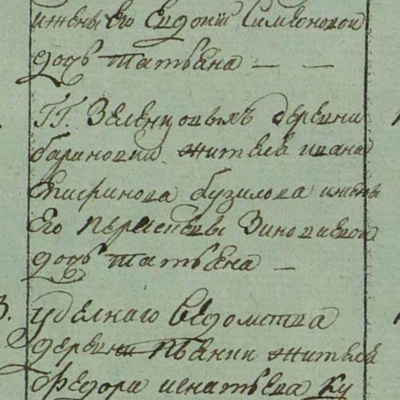 ижены его Евдокии Симеоновой
дочь татьѣна — —
ГГ. Зеленцовыхъ деревни
бариновки жителя ивана
бузилова ижены
Его Параскевы Зиновиевой
дочь татьѣна —
3. уделнаго ведомства
деревни жителя
Федора игнатьева ку